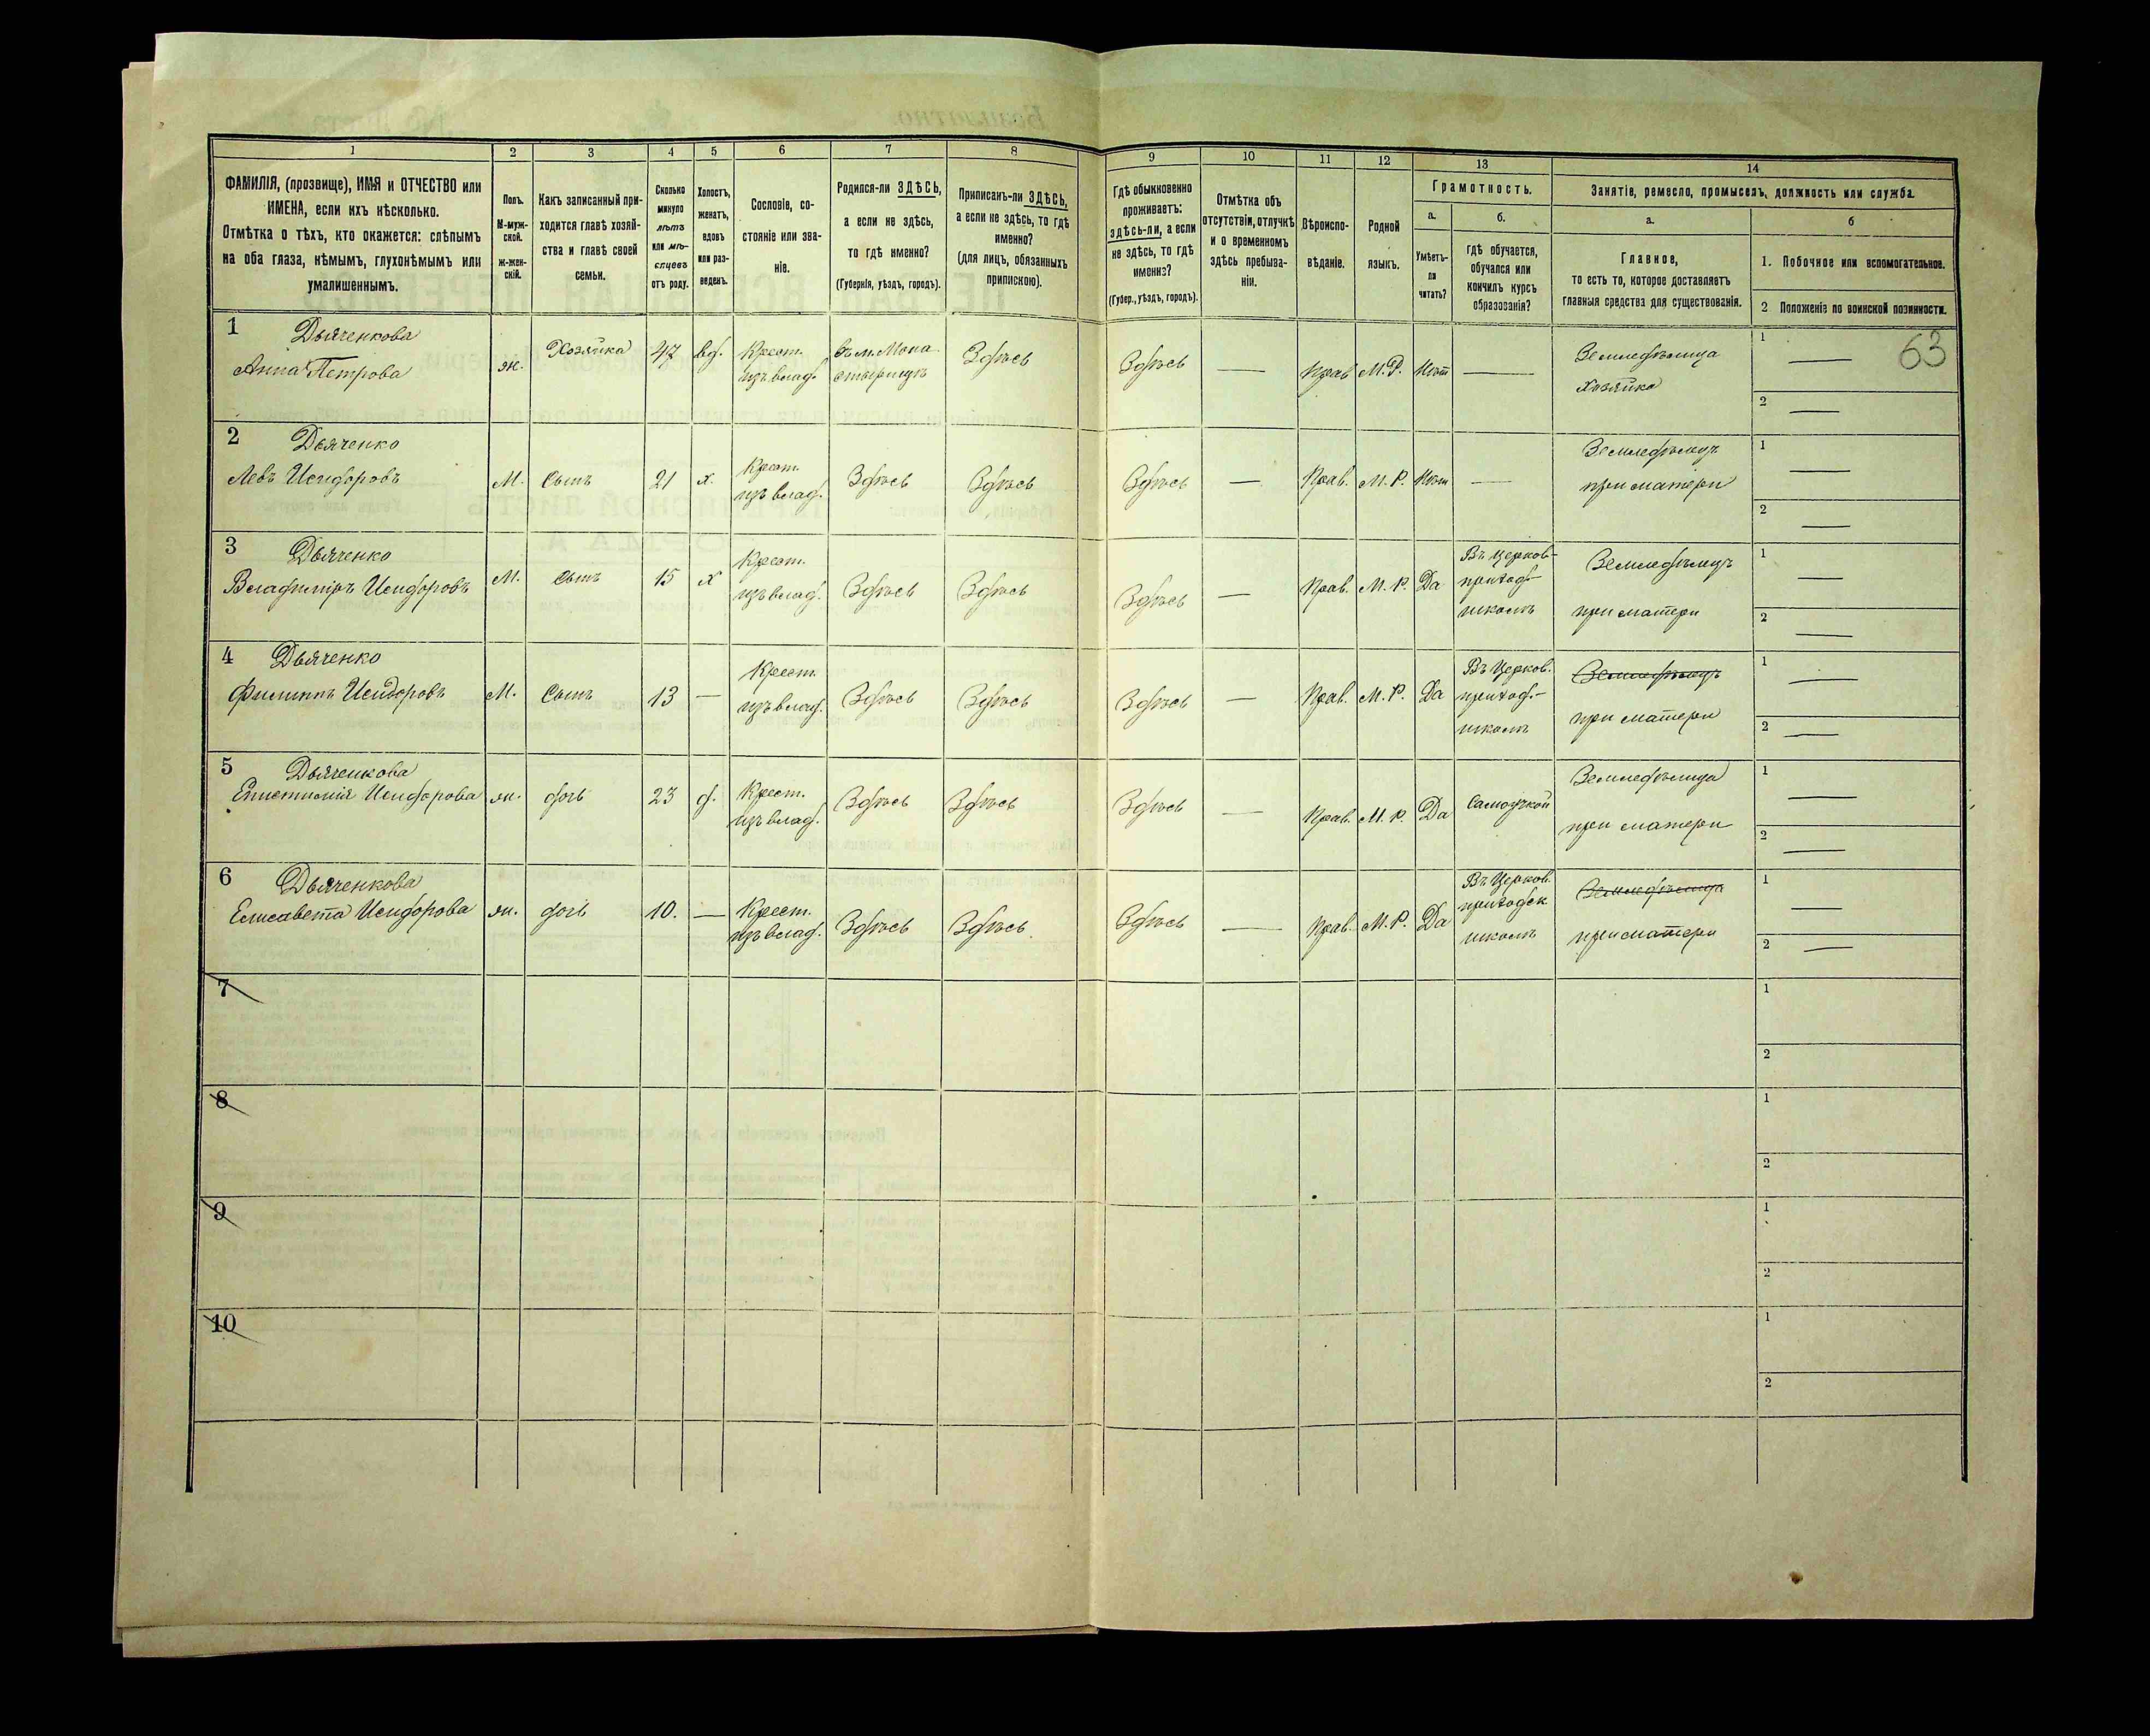 1
2
3
4
5
6
7
8
9
10
11
12
13
14
ФАМИЛІЯ, (прозвище), ИМЯ и ОТЧЕСТВО или
ИМЕНА, если ихъ нѣсколько.
Отмѣтка о тѣхъ, кто окажется: слѣпымъ
на оба глаза, нѣмымъ, глухонѣмымъ или
умалишеннымъ.
Полъ.
М-муж-
ской.
ж-жен-
скій.
Какъ записанный при-
ходится главѣ хозяй-
ства и главѣ своей
семьи.
Сколько
минуло
лѣтъ
или мѣ-
сяцевъ
отъ роду.
Холостъ,
женатъ,
вдовъ
или раз-
веденъ.
Сословіе, со-
стояніе или зва-
ніе.
Родился-ли ЗДѢСЬ,
а если не здѣсь,
то гдѣ именно?
(Губернія, уѣздъ, городъ).
Приписанъ-ли ЗДѢСЬ,
а если не здѣсь, то гдѣ
именно?
(для лицъ, обязанныхъ
припискою).
Гдѣ обыкновенно
проживаетъ:
здѣсь-ли, а если
не здѣсь, то гдѣ
именно?
(Губер., уѣздъ, городъ).
Отмѣтка объ
отсутствіи, отлучкѣ
и о временномъ
здѣсь пребыва-
ніи.
Вѣроиспо-
вѣданіе.
Родной
языкъ.
Грамотность.
а.
Умѣетъ-
ли
читать?
б.
гдѣ обучается,
обучался или
кончилъ курсъ
образованія?
Занятіе, ремесло, промыселъ, должность или служба.
а.
Главное,
то есть то, которое доставляетъ
главныя средства для существованія.
б
1. Побочное или вспомогательное.
2 Положеніе по воинской повинности.
63
1
Дьяченкова
Анна Петрова
ж.
Хозяйка
47
вд.
Крест.
изъ влад.
въ м. Мона
стырищъ
Здѣсь
Здѣсь
—
Прав
М.Р.
Нѣт
—
Земледѣлица
Хозяйка
1 —
2 —
2
Дьяченко
Левъ Исидоровъ
М.
Сынъ
21
х.
Крест.
изъ влад.
Здѣсь
Здѣсь
Здѣсь
—
Прав.
М.Р.
Нѣт
—
Земледѣлецъ
при матери
1 —
2 —
3
Дьяченко
Владиміръ Исидоровъ
М.
Сынъ
15
х
Крест.
изъ влад.
Здѣсь
Здѣсь
Здѣсь
—
Прав.
М.Р.
Да
Въ церков-
приход-
школѣ
Земледѣлецъ
при матери
1 —
2 —
4
Дьяченко
Филиппъ Исидоровъ
М.
Сынъ
13
—
Крест.
изъ влад.
Здѣсь
Здѣсь
Здѣсь
—
Прав.
М.Р.
Да
Въ Церков.
приход-
школѣ
Земледѣлецъ
при матери
1 —
2 —
5
Дьяченкова
Епистимія Исидорова
ж.
дочь
23
д.
Крест.
изъ влад.
Здѣсь
Здѣсь
Здѣсь
—
Прав.
М.Р.
Да
Самоучкой
Земледѣлица
при матери
1 —
2 —
6
Дьяченкова
Елисавета Исидорова
ж.
дочь
10.
—
Крест.
изъ влад.
Здѣсь
Здѣсь
Здѣсь
—
Прав.
М.Р.
Да
Въ Церков.
приходск
школѣ
Земледѣлица
при матери
1 —
2 —
7
1
2
8
1
2
9
1
2
10
1
2